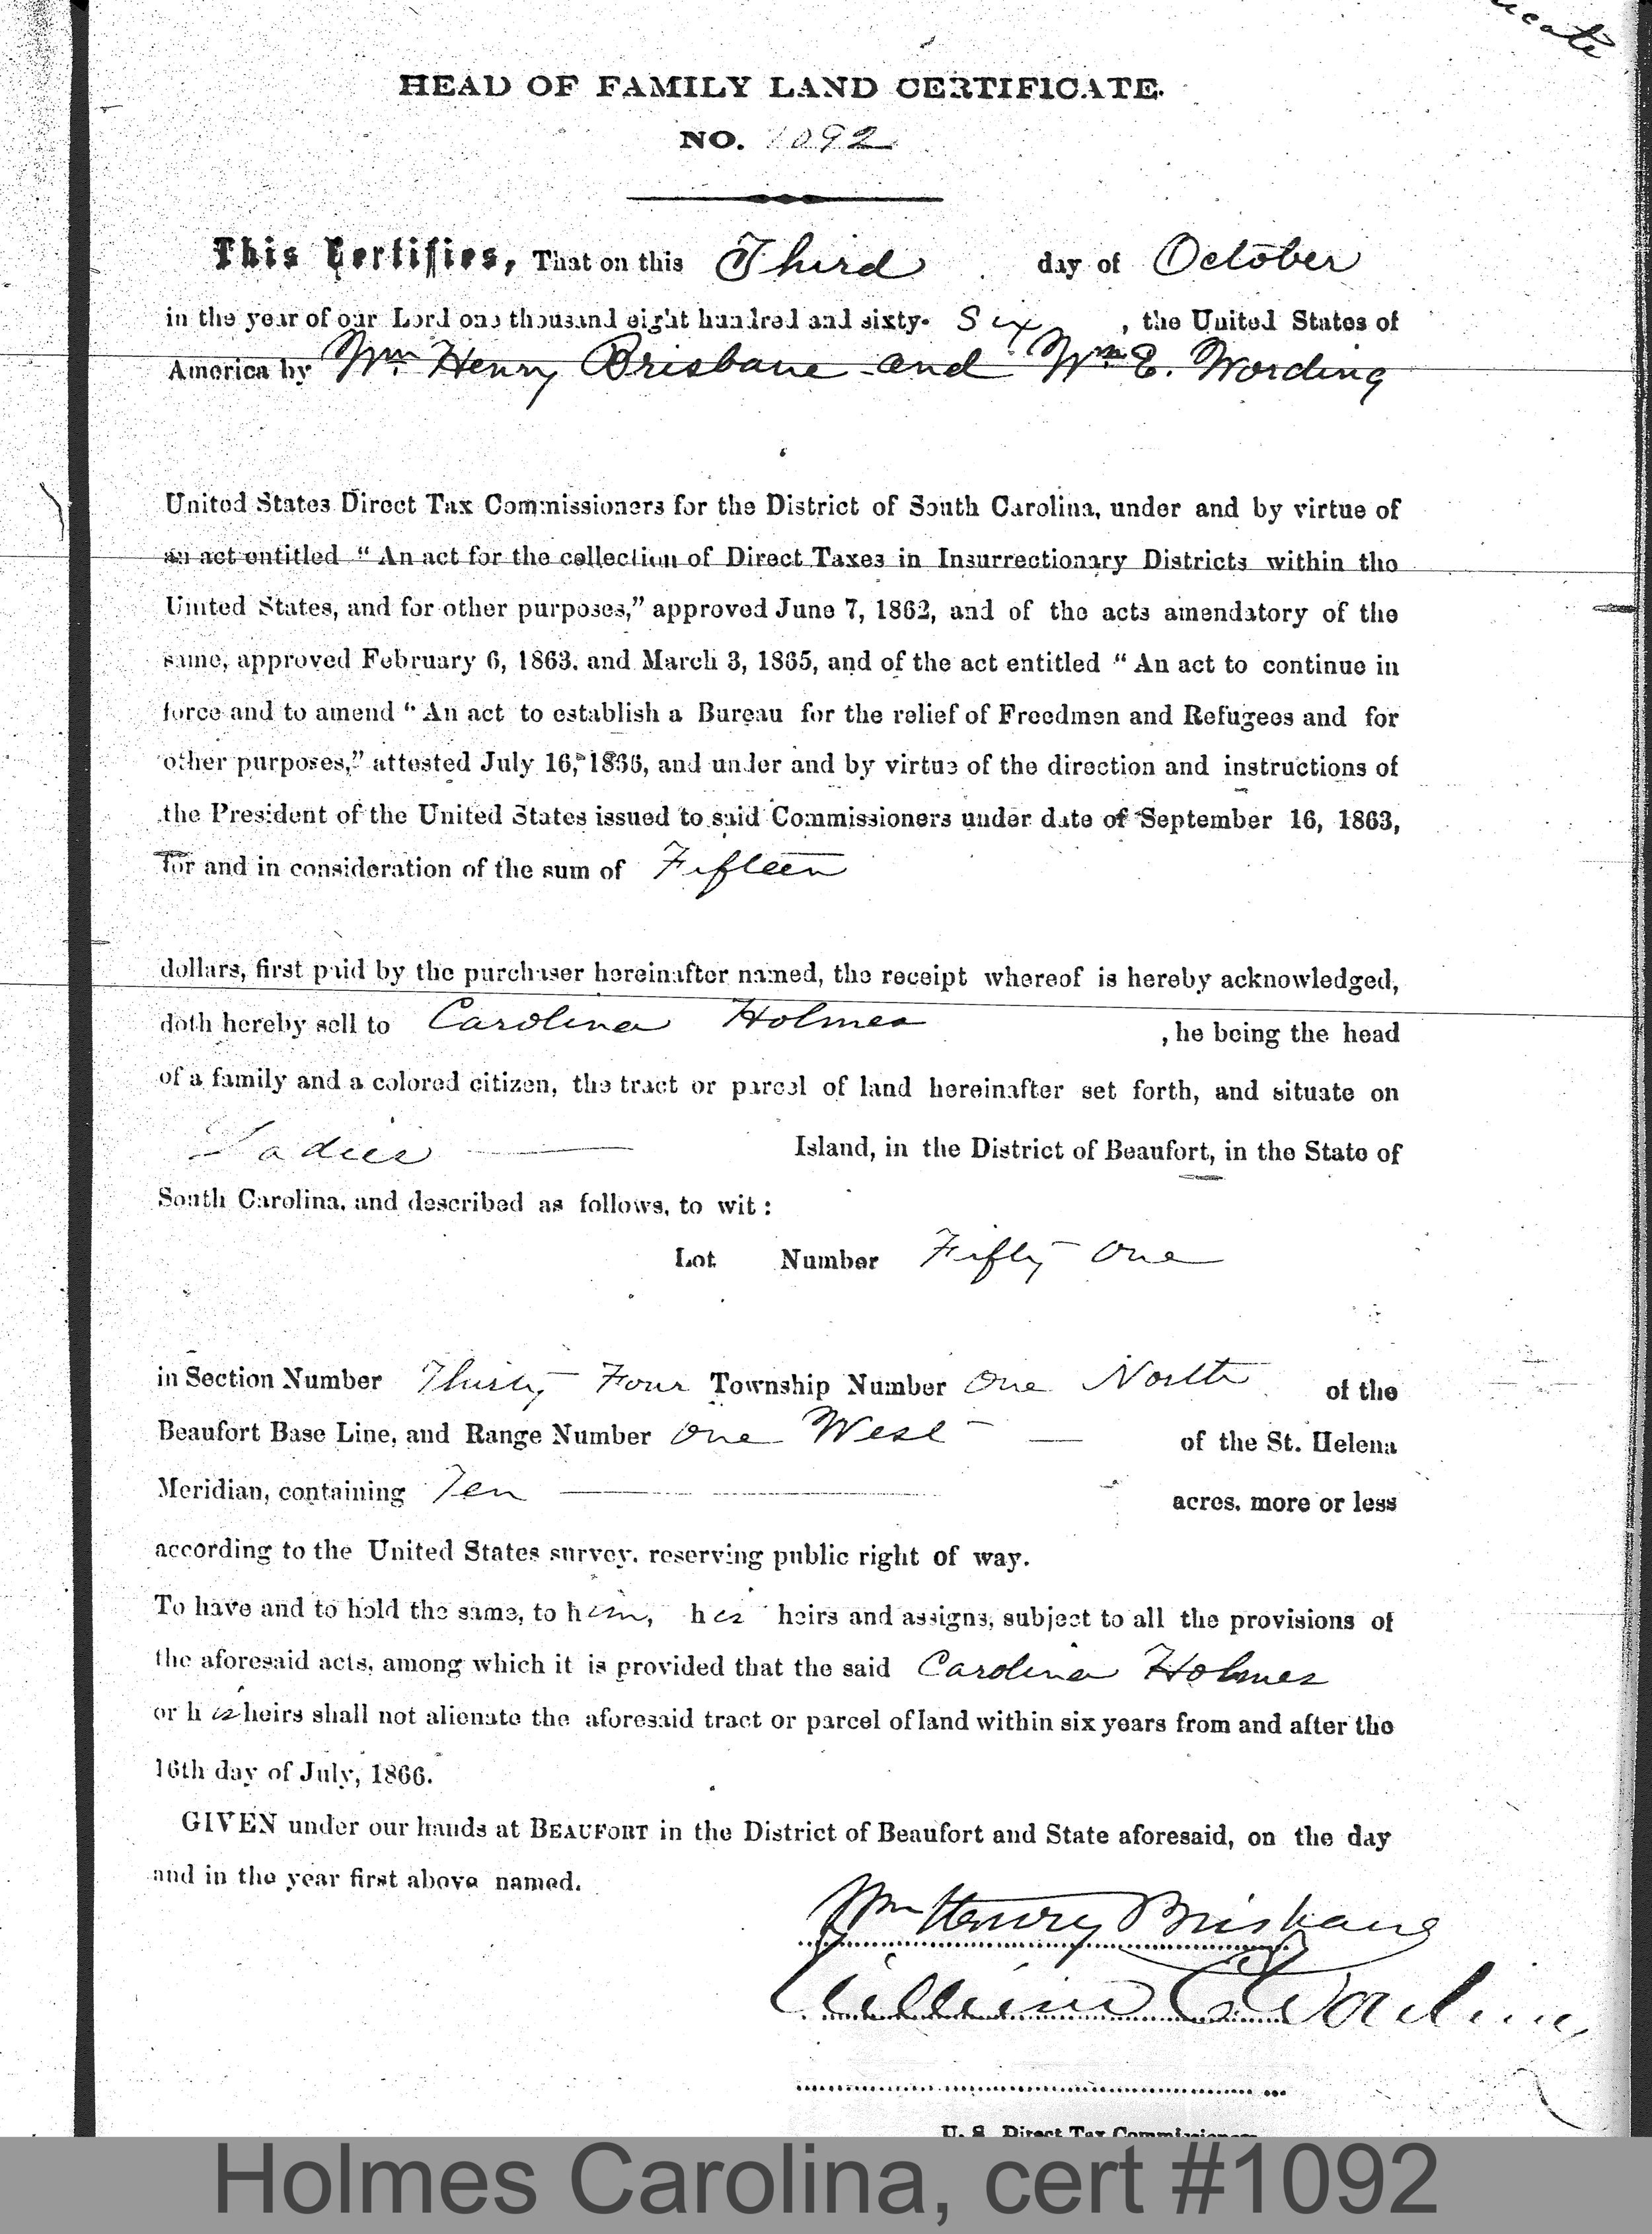 ucate
HEAD OF FAMILY LAND CERTIFICATE.
NO. 1092
This Certifies, That on this Third day of October
in the year of our Lord one thousand eight hundred and sixty- Six, the United States of
America by Wm. Henry Brisbane and Wm E. Wording
United States Direct Tax Commissioners for the District of South Carolina, under and by virtue of
an act entitled "An act for the collection of Direct Taxes in Insurrectionary Districts within the
United States, and for other purposes," approved June 7, 1862, and of the acts amendatory of the
same, approved February 6, 1863. and March 3, 1865, and of the act entitled "An act to continue in
force and to amend "An act to establish a Bureau for the relief of Freedmen and Refugees and for
other purposes," attested July 16, 1866, and under and by virtue of the direction and instructions of
the President of the United States issued to said Commissioners under date of September 16, 1863,
for and in consideration of the sum of Fifteen
dollars, first paid by the purchaser hereinafter named, the receipt whereof is hereby acknowledged,
doth hereby sell to Carolina Holmes , he being the head
of a family and a colored citizen, the tract or parcel of land hereinafter set forth, and situate on
Ladies Island, in the District of Beaufort, in the State of
South Carolina, and described as follows, to wit:
Lot Number Fifty One
in Section Number Thirty Four Township Number One North of the
Beaufort Base Line, and Range Number One West of the St. Helena
Meridian, containing Ten acres, more or less
according to the United States survey, reserving public right of way.
To have and to hold the same, to him, his heirs and assigns, subject to all the provisions of
the aforesaid acts, among which it is provided that the said Carolina Holmes
or his heirs shall not alienate the aforesaid tract or parcel of land within six years from and after the
16th day of July, 1866.
GIVEN under our hands at BEAUFORT in the District of Beaufort and State aforesaid, on the day
and in the year first above named.
Wm Henry Brisbane
William E. Wording
U. S. Direct Tax Commissioners
Holmes Carolina, cert #1092